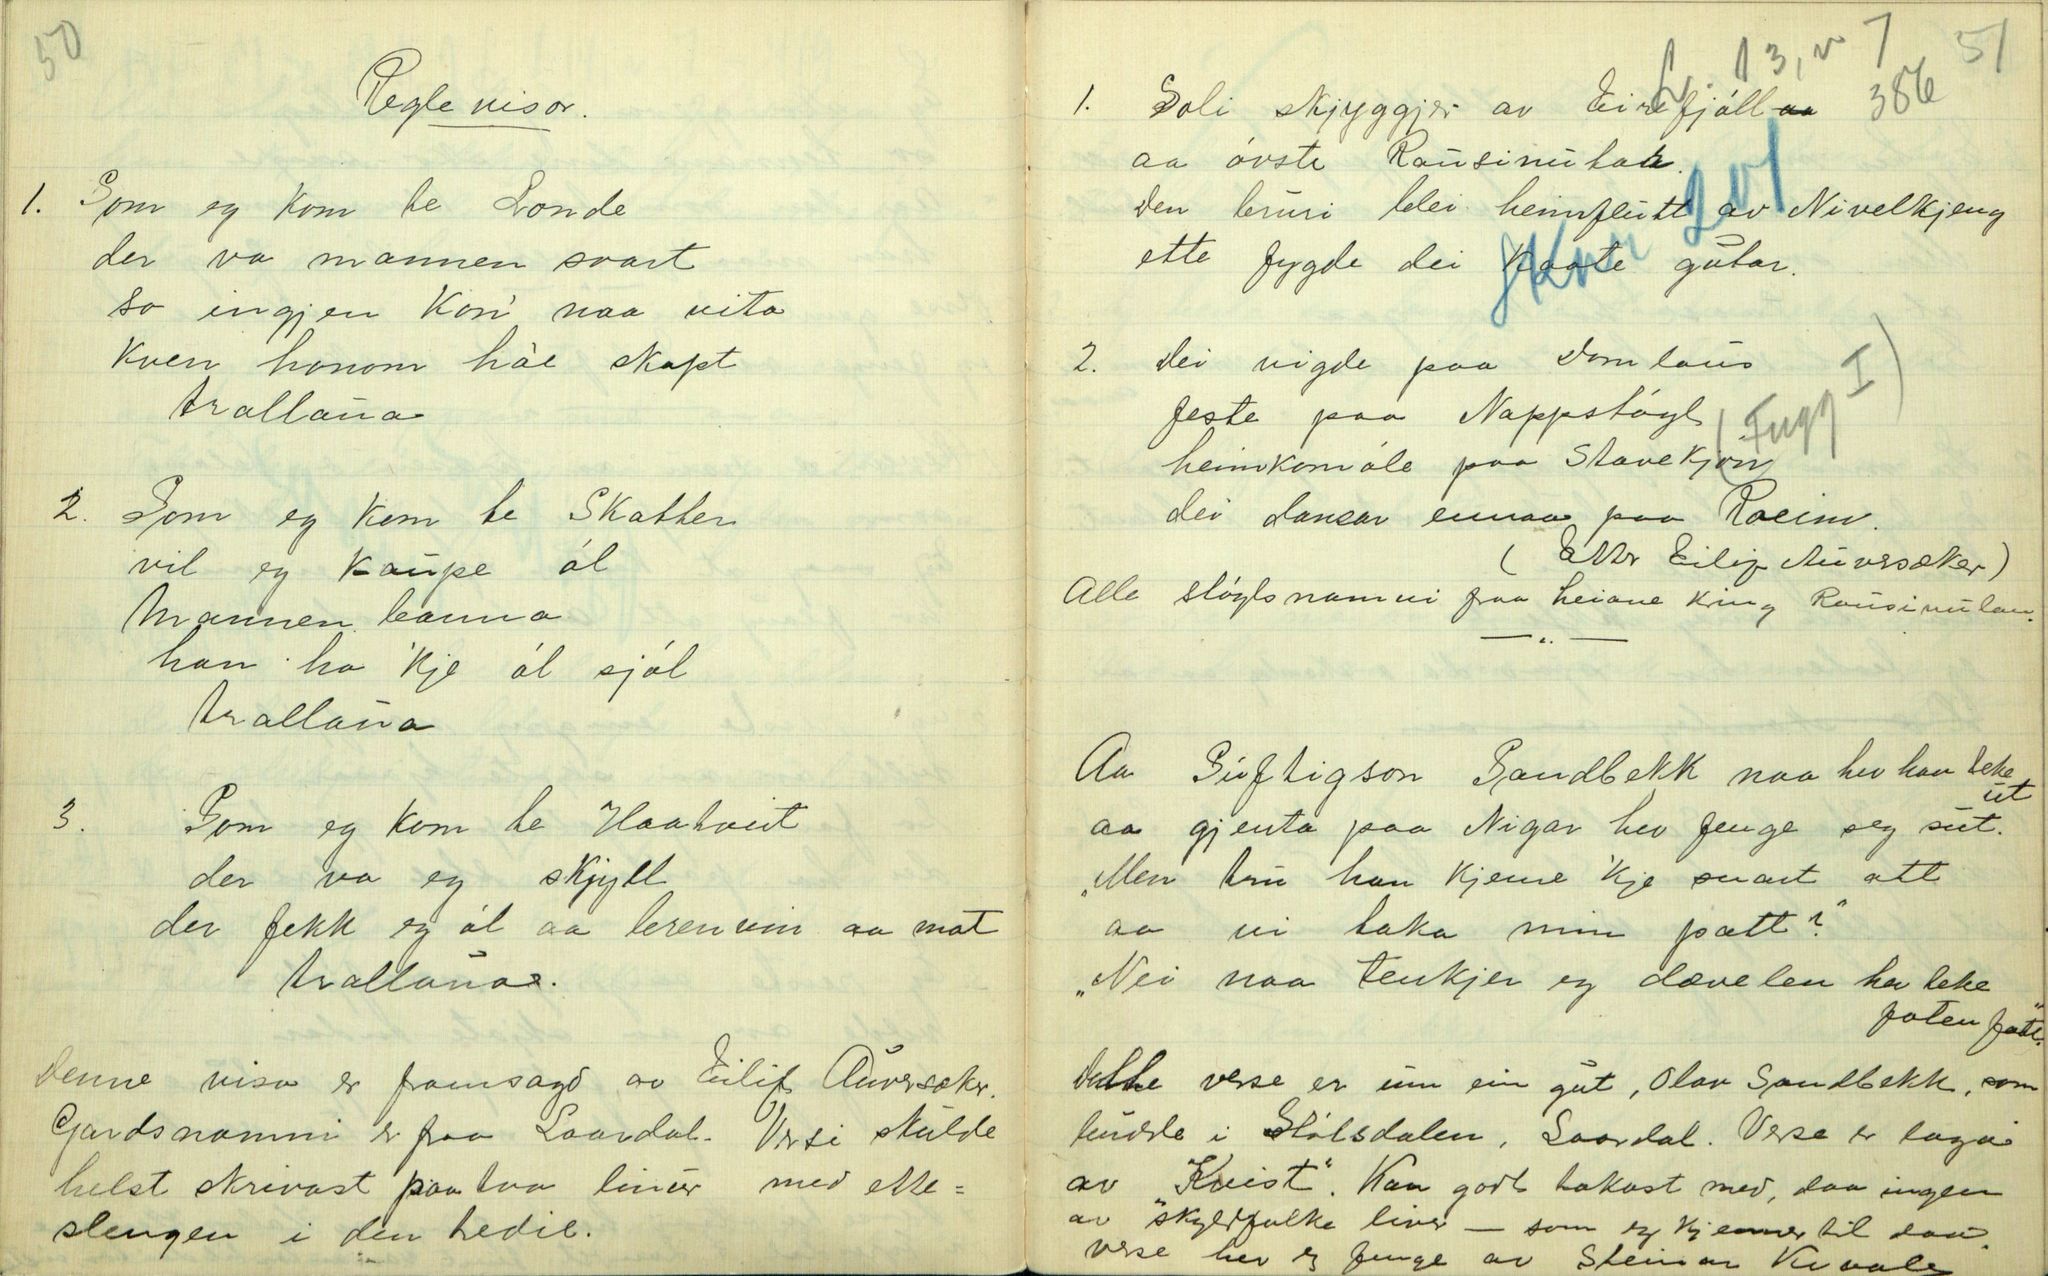 50
Reglevisor.
1. Som eg kom te Londe
der va mannen svart
so ingjen kon' naa vita
kven honom hàe skapt
trallaūa
2. Som eg kom te Skatter
vil eg kaūpe ól
Mannen banna
han ha 'kje ól sjól
trallaūa
3. Som eg kom te Haatveit
der va eg skjyll
der fekk eg ól aa brennvin aa mat
trallaūa.
Denne visa er framsagd av Eilif Aūversæker.
Gardsnamni er fraa Laardal. Versi skūlde
helst skrivast paa tvo linūr med ette-
slengen i den tredie.
51
L. 13, v 7
386
1. Soli skjyggjer av Eirefjóll
aa óvste Raūsinūtan.
Den brūri blei heimflutt av Nivelkjeng
ette fygde dei kaate gūtar.
2. Dei vigde paa Domlaūs
feste paa Nappstóyl
heimkomóle paa Stavekjónn
dei dansar ennaa paa
(Fugg I)
(Etter Eilif Aūversæker)
Alle stóylsnamni fraa heiane kring Raūsinūtan.
Aa Gūftigson Sandbekk naa hev han teke
ūt
aa gjenta paa Nigar hev fenge seg sūt.
"Men trū han kjeme 'kje snart att
aa vi taka min patt?"
"Nei naa tenkjer eg dævelen hev teke
foten fatt."
Dette verse er ūm ein gūt, Olav Sandbekk, som
būdde i Stólsdalen, Laardal. Verse er laga
av "Kvist". Kan godt takast med, daa ingen
av skyldfolke liver — som eg kjenner til daa.
Verse hev eg fenge av Steinar Kivale